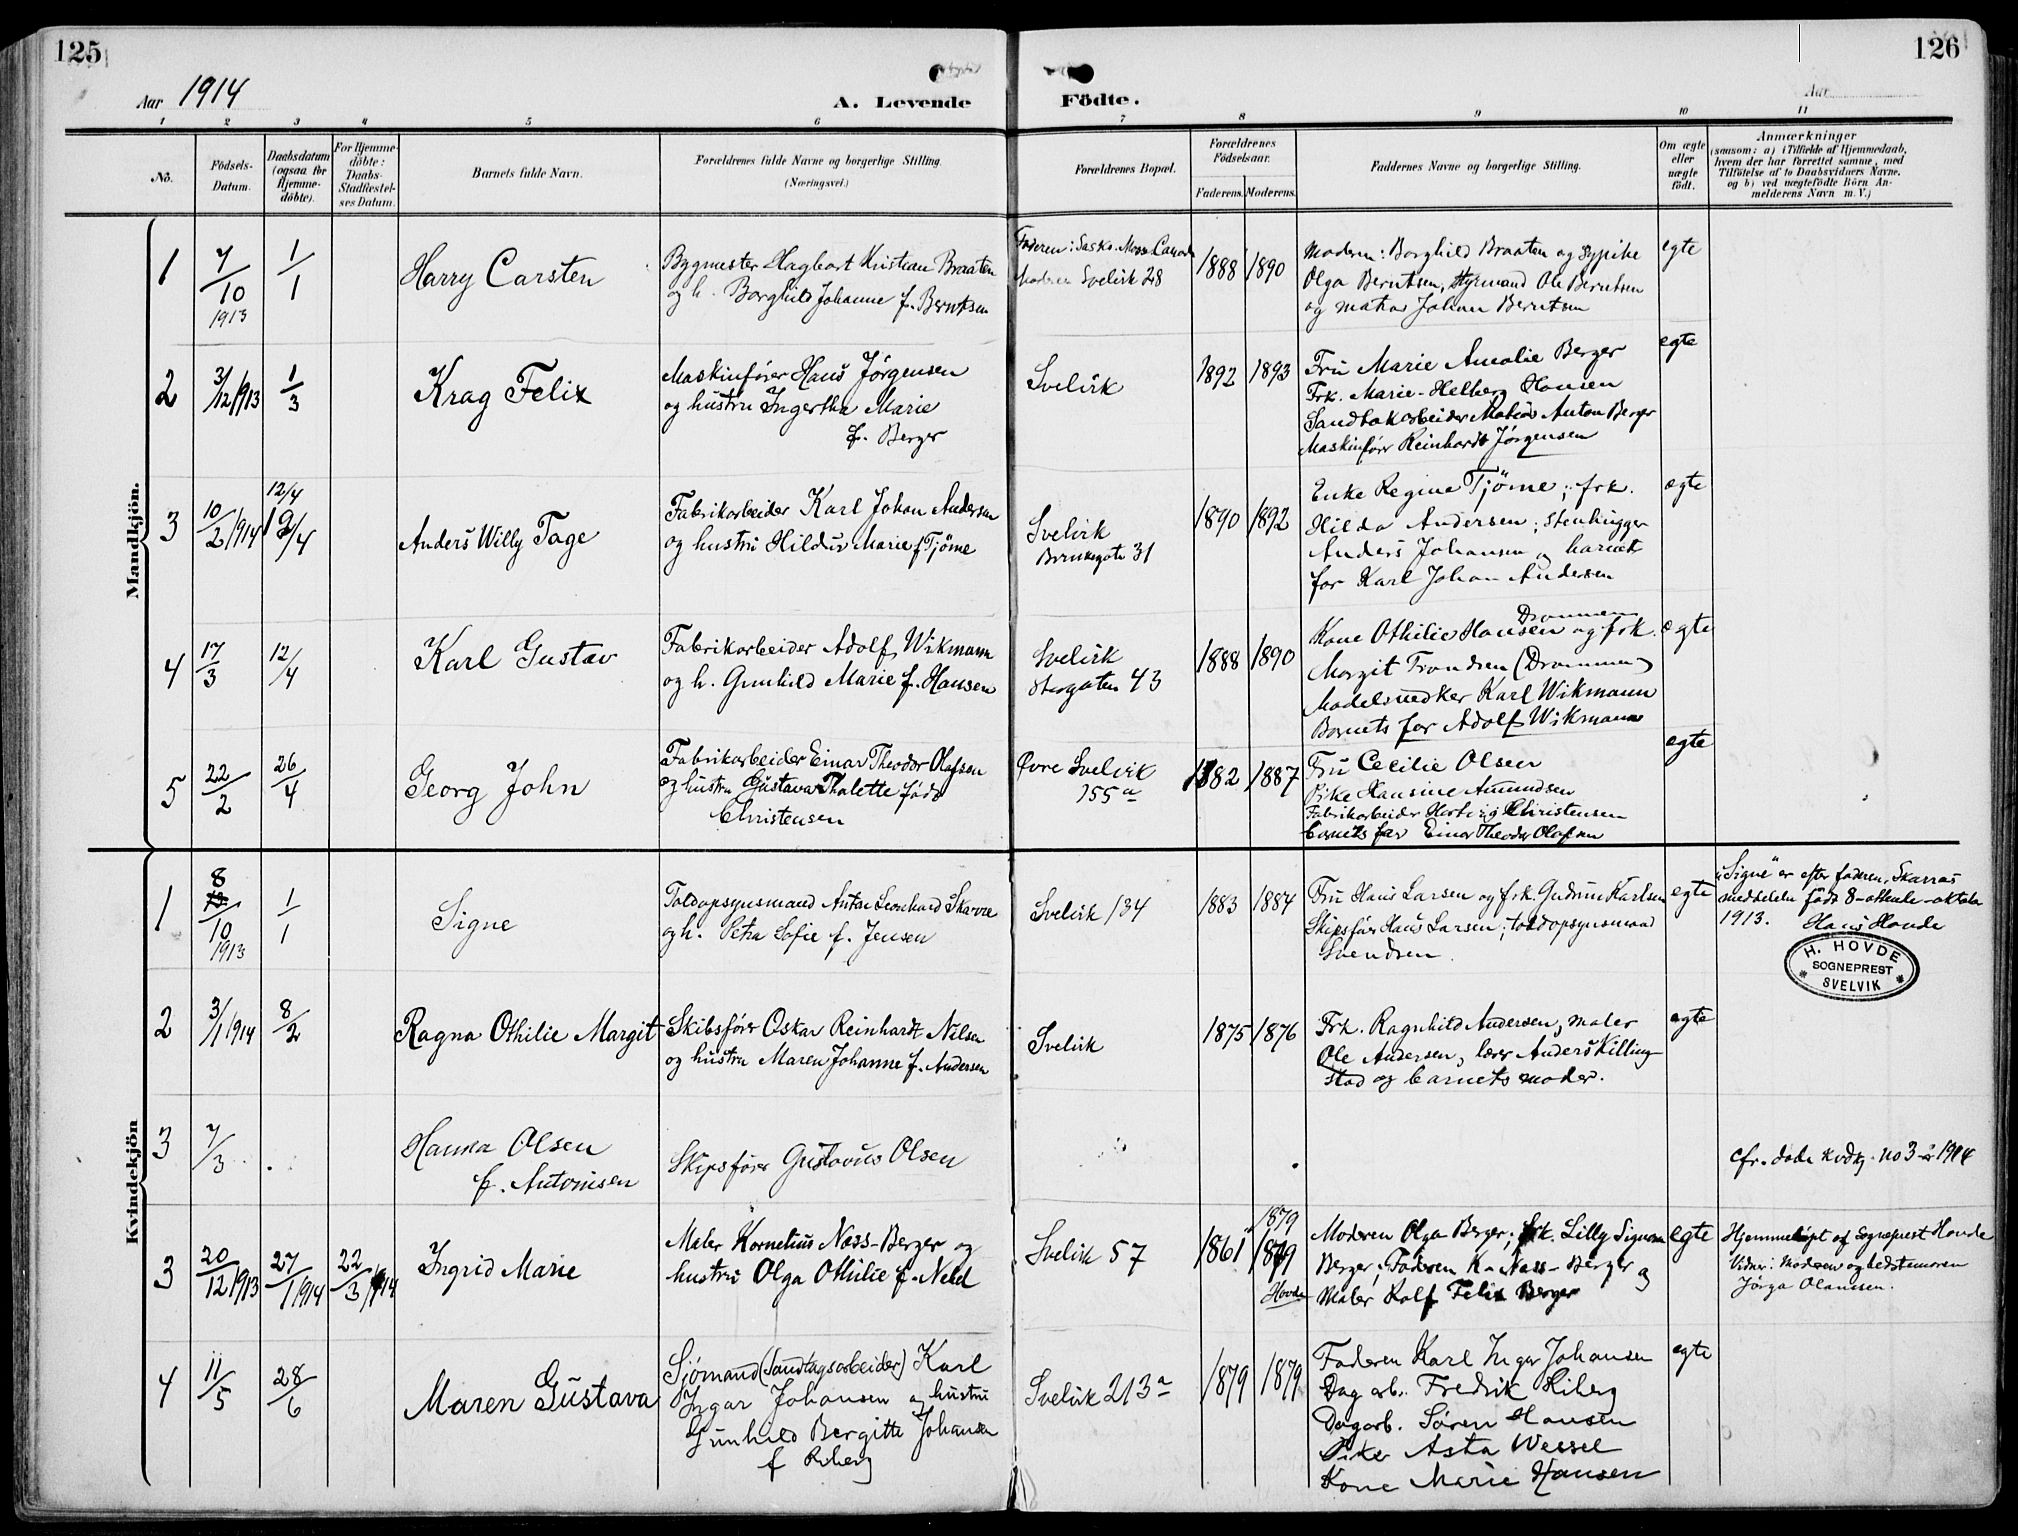 125
126
Aar 1914
A. Levende Födte.
Aar
1 2 3 4 5 6 7 8 9 10 11
Nö.
Födsels-
Datum.
Daabsdatum
(ogsaa for
Hjemme-
döbte).
For Hjemme-
döbte:
Daabs-
Stadfæstel-
ses Datum.
Barnets fulde Navn.
Forældrenes fulde Navne og borgerlige Stilling.
(Næringsvei.)
Forældrenes Bopæl.
Forældrenes
Födselsaar.
Faderens. Moderens.
Faddernes Navne og borgerlige Stilling.
Om ægte
eller
uægte
født.
Anmærkninger
(saasom: a) i Tilfælde af Hjemmedaab,
hvem der har forrettet samme, med
Tilföielse af to Daabsvidners Navne,
og b) ved uægtefödte Börn An-
melderens Navn m. V.)
Mandkjön.
1
7/10
1913
1/1
Harry Carsten
Bygmester Hagbart Kristian Braaten
og h. Borghild Johanne f. Berntsen
Faderen: Sask. Canada
Moderen Svelvik 28
1888 1890
Moderen: Borghild Braaten og
Olga Berntsen, Styrmand Ole Berntsen
og matros Johan Berntsen
egte
2
3/12 1913
1/3
Krag Felix
Maskinfører Hans Jørgensen
og hustru Ingertha Marie
f. Berger
Svelvik
1892 1893
Fru Marie Amalie Berger
Frk. Marie Helberg Hansen
Matias Anton Berger
Maskinfører Reinhardt Jørgensen
egte
3
10/2 1914
12/4
12/4
Anders Willy Tage
Fabrikarbeider Karl Johan Andersen
og hustru Hildur Marie f Tjöme
Svelvik
31
1890 1892
Enke Regine Tjöme; frk.
Hilda Andersen; stenhugger
Anders Johansen og barnets
far Karl Johan Andersen
ægte
4
17/3
12/4
Karl Gustav
Fabrikarbeider Adolf Wikmann
og h. Gunhild Marie f. Hansen
Svelvik
43
1888 1890
Drammen
Kone Othilie Hansen og frk.
Margit Trondsen (Drammen)
Modelsnedker Karl Wikmann
Barnets far Adolf Wikmann
egte
5
22/2
26/4
Georg John
Fabrikarbeider Einar Theodor Olafsen
og hustru Gustava Thalette født
Christensen
Øvre Svelvik
155 a
1882 1887
Fru Cecilie Olsen
Pike Hansine Amundsen
Fabrikarbeider Hertvig Christensen
barnets far Einar Theodor Olafsen
egte
Kvindekjön
1
8
10
1913
1/1
Signe
Toldopsynsmand Anton Leonhard Skarre
og h. Petra Sofie f. Jensen
Svelvik 134
1883 1884
Fru Hans Larsen og frk. Gudrun Karlsen
Skipsfører Hans Larsen; toldopsynsmand
Svendsen.
egte
"Signe" er efter faderen, Skarres
meddelelse født 8-ottende-oktober
1913. Hans Hovde
H. HOVDE
SOGNEPREST
SVELVIK
2
3/1 1914
8/2
Ragna Othilie Margit
Skibsfører Oskar Reinhardt Nilsen
og hustru Maren Johanne f. Andersen
Svelvik
1875 1876
Frk. Ragnhild Andersen, maler
Ole Andersen, lærer Anders Killing-
stad og barnets moder.
egte
3
7/3
Hanna Olsen
f. Antonisen
Skipsfører Gustavus Olsen
cfr. døde kvdkj. no 3 - 1914
3
20/12 1913
27/1 1914
22/3 1914
Ingrid Marie
Maler Kornelius Næss-Berger og
hustru Olga Othilie f. Neld
Svelvik 57
1861
1879
1879
Hovde
Moderen Olga Berger; frk. Lilly Signora
Berger; Faderen K. Næss-Berger og
Maler Rolf Felix Berger
egte
Hjemmedøpt af Sogneprest Hovde
Vidner: Moderen og bedstemoren
Jörga Olaussen.
4
11/5
28/6
Maren Gustava
Sjömand (Sandtagsarbeider) Karl
Ingar Johansen og hustru
Gunhild Bergitte Johansen
f
Svelvik 213 a
1879 1879
Faderen Karl Ingar Johansen
Dagarb. Fredrik Hiberg
Dagarb. Sören Hansen
Pike Asta Wessel
Kone Marie Hansen
egte